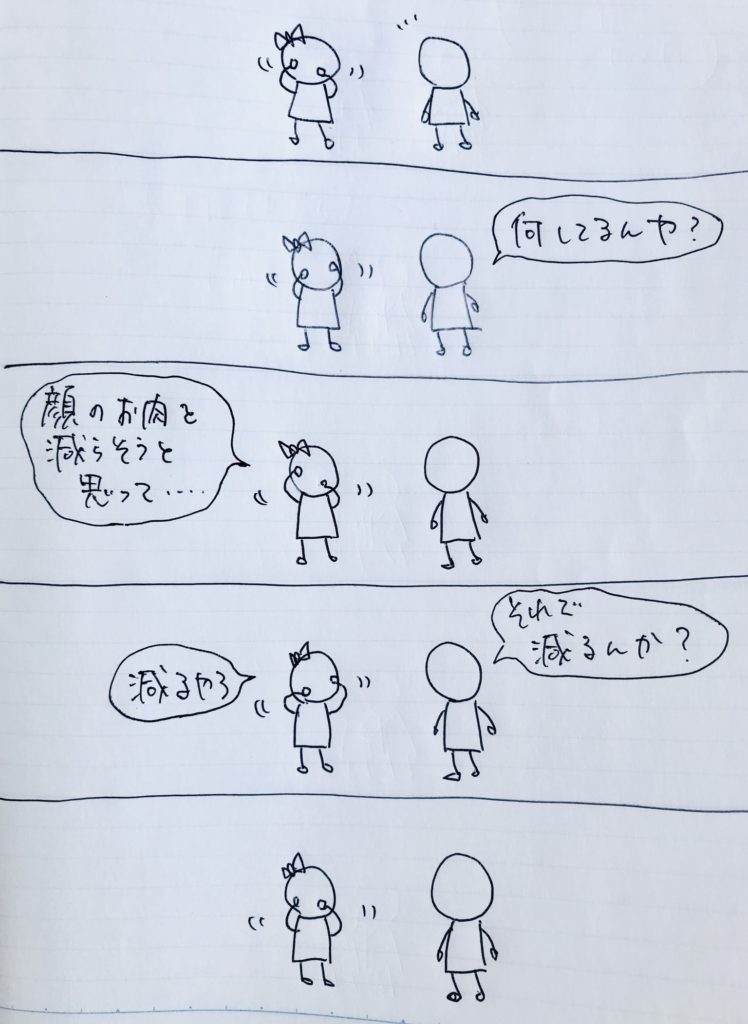 何してるんや?
顔のお肉を
減らそうと
思って‥‥
それで
減るんか?
減るやろ